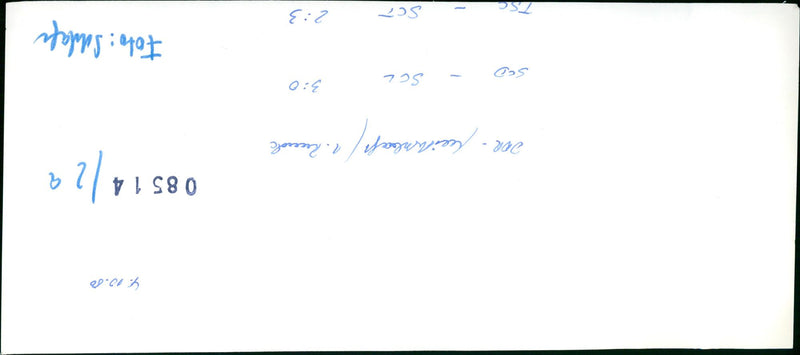 4.10.80
08514/29
DDR - Meisterschaft / 1. Runde
SCD - SCL 3:0
Foto:
TSC - SCT 2:3